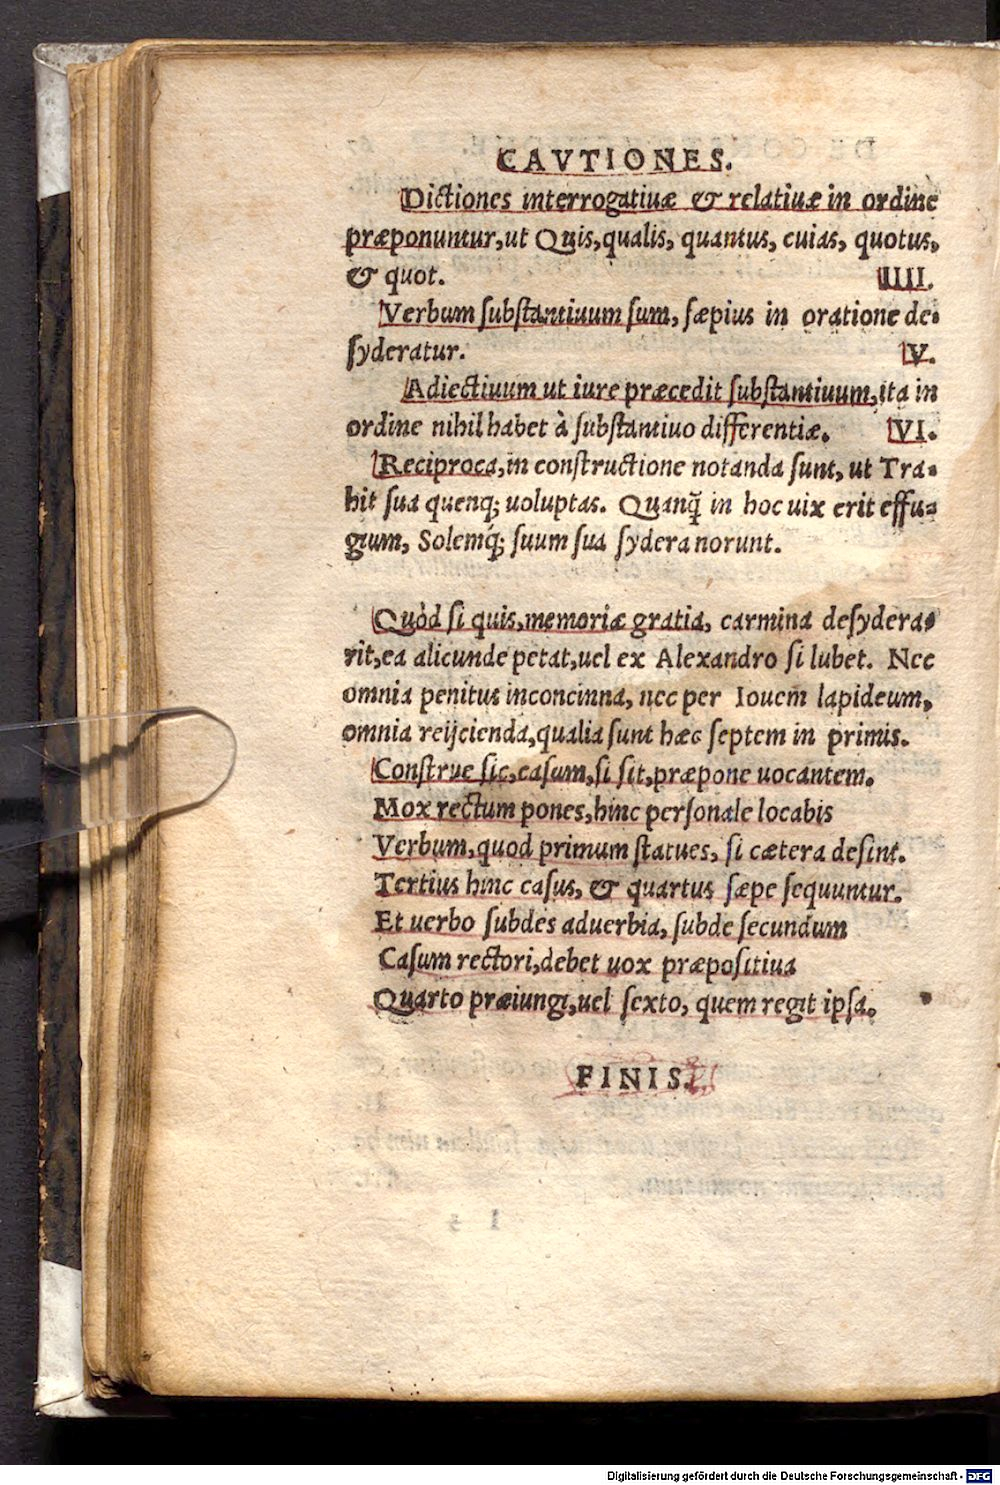 CAVTIONES.
Dictiones interrogatiuæ & relatiuæ in ordine
præponuntur,ut Quis,qualis, quantus, cuias, quotus,
& quot. IIII.
Verbum ſubſtantiuum ſum, ſæpius in oratione de-
ſyderatur. V.
Adiectiuum ut iure præcedit ſubſtantiuum,ita in
ordine nihil habet à ſubſtantiuo differentiæ. VI.
Reciproca,in conſtructione notanda ſunt, ut Tra-
hit ſua quenq; uoluptas. Quanq̃ in hoc uix erit effu-
gium, Solemq́; ſuum ſua ſydera norunt.
Quòd ſi quis,memoriæ gratia, carmina deſydera-
rit,ea alicunde petat,uel ex Alexandro ſi lubet. Nec
omnia penitus inconcinna, nec per Iouem lapideum,
omnia reijcienda,qualia ſunt hæc ſeptem in primis.
Conſtrue ſic,caſum,ſi ſit,præpone uocantem.
Mox rectum pones,hinc perſonale locabis
Verbum,quod primum ſtatues, ſi cætera deſint.
Tertius hinc caſus, & quartus ſæpe ſequuntur.
Et uerbo ſubdes aduerbia, ſubde ſecundum
Caſum rectori,debet uox præpoſitiua
Quarto præiungi,uel ſexto, quem regit ipſa.
FINIS.
Digitalisierung gefördert durch die Deutsche Forschungsgemeinschaft - DFG